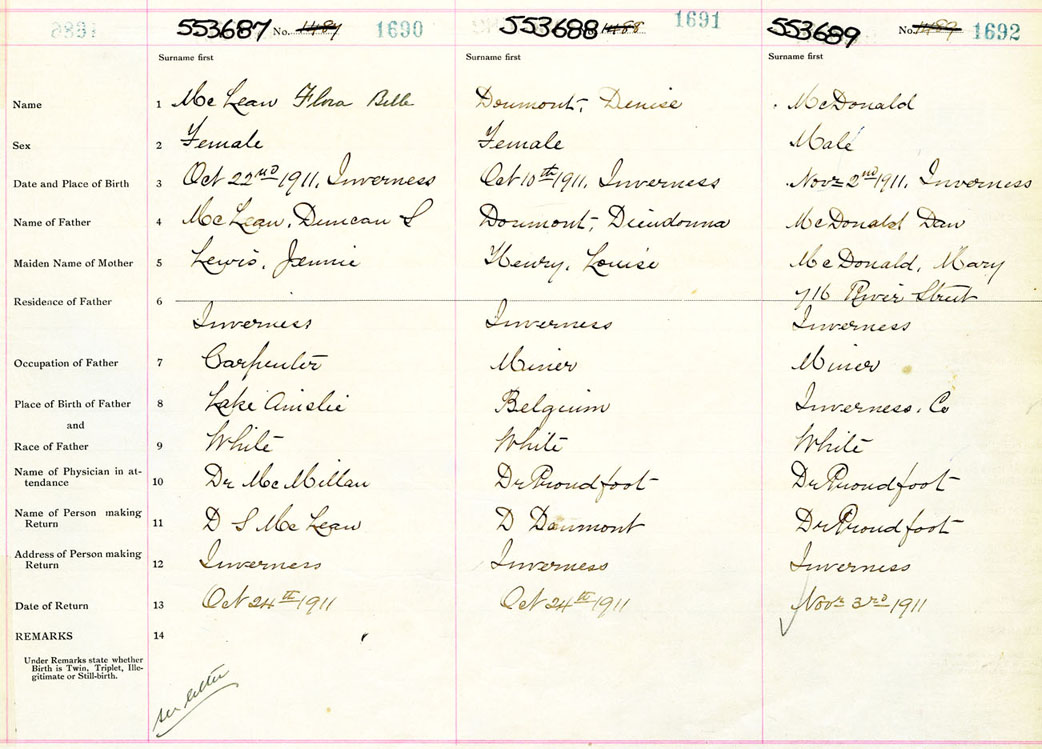 553687 No. 1487 1690 553688 1488 1691 553689 No. 1489 1692
Surname first Surname first Surname first
Name 1 McLean Flora Belle Doumont, Denise McDonald
Sex 2 Female Female Male
Date and Place of Birth 3 Oct 22nd 1911, Inverness Oct 10th 1911, Inverness Nov 2nd 1911, Inverness
Name of Father 4 McLean, Duncan S Doumont, Dieudonna McDonald Dan
Maiden Name of Mother 5 Lewis, Jennie Henry, Louise McDonald, Mary
Residence of Father 6 716 River Street
Inverness Inverness Inverness
Occupation of Father 7 Carpenter Miner Miner
Place of Birth of Father 8 Lake Ainslie Belgium Inverness. Co
and
Race of Father 9 White White White
Name of Physician in at-
tendance 10 Dr McMillan Dr Proudfoot Dr Proudfoot
Name of Person making
Return 11 D S McLean D Doumont Dr Proudfoot
Address of Person making
Return 12 Inverness Inverness Inverness
Date of Return 13 Oct 24th 1911 Oct 24th 1911 Nov 3rd 1911
REMARKS 14
Under Remarks state whether
Birth is Twin, Triplet, Ille-
gitimate or Still-birth.
see letter